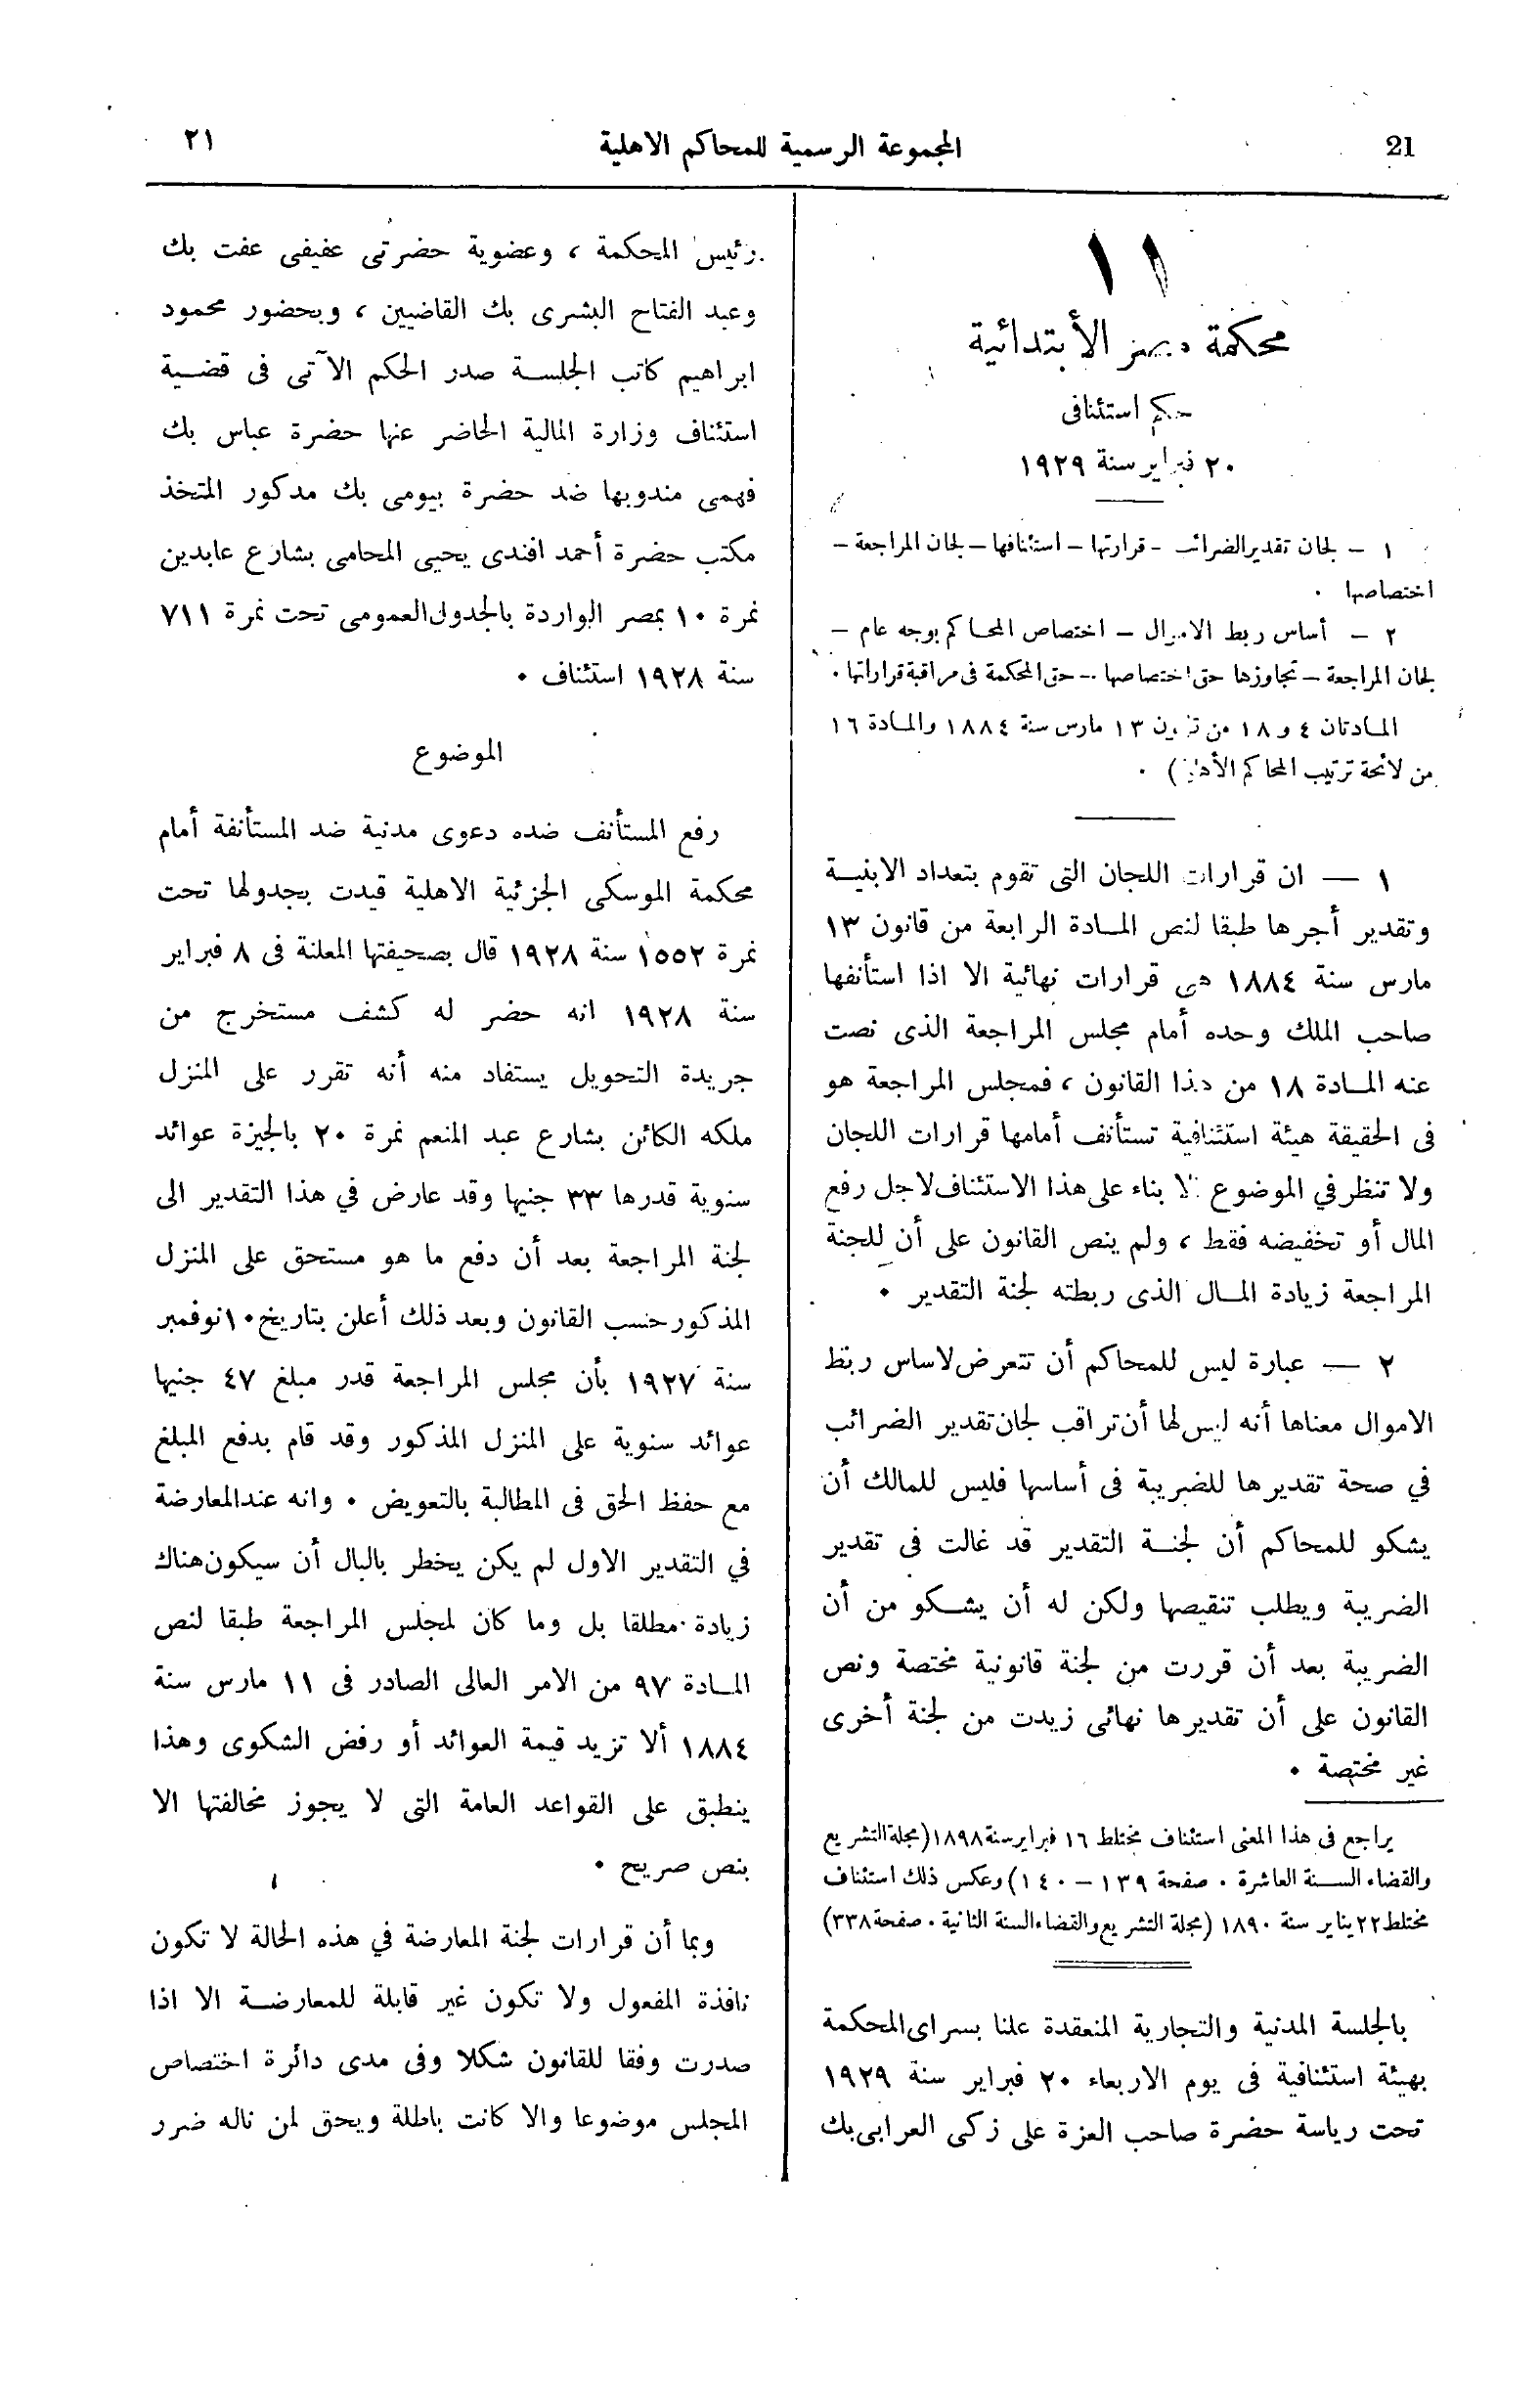 21
المجموعة الرسمية للمحاكم الاهلية
٢١
١١
محكمة مصر الأبتدائية
حكم استئنافى
٢٠ فبراير سنة ١٩٢٩
١ – لجان تقدير الضرائب – قراراتها – استئنافها – لجان المراجعة –
اختصاصها .
٢ – أساس ربط الاموال – اختصاص المحاكم بوجه عام –
لجان المراجعة – تجاوزها حق اختصاصها – حق المحكمة فى مراقبة قراراتها .
المادتان ٤ و ١٨ من قانون ١٣ مارس سنة ١٨٨٤ والمادة ١٦
من لائحة ترتيب المحاكم الأهلية) .
١ — ان قرارات اللجان التى تقوم بتعداد الابنية
وتقدير أجرها طبقا لنص المادة الرابعة من قانون ١٣
مارس سنة ١٨٨٤ هى قرارات نهائية الا اذا استأنفها
صاحب الملك وحده أمام مجلس المراجعة الذى نصت
عنه المادة ١٨ من هذا القانون ، فمجلس المراجعة هو
فى الحقيقة هيئة استئنافية تستأنف أمامها قرارات اللجان
ولا تنظر في الموضوع الا بناء على هذا الاستئناف لاجل رفع
المال أو تخفيضه فقط ، ولم ينص القانون على أن للجنة
المراجعة زيادة المال الذى ربطته لجنة التقدير .
٢ — عبارة ليس للمحاكم أن تتعرض لاساس ربط
الاموال معناها أنه ليس لها أن تراقب لجان تقدير الضرائب
في صحة تقديرها للضريبة فى أساسها فليس للمالك أن
يشكو للمحاكم أن لجنة التقدير قد غالت فى تقدير
الضريبة ويطلب تنقيصها ولكن له أن يشكو من أن
الضريبة بعد أن قررت من لجنة قانونية مختصة ونص
القانون على أن تقديرها نهائى زيدت من لجنة أخرى
غير مختصة .
يراجع فى هذا المعنى استئناف مختلط ١٦ فبراير سنة ١٨٩٨ (مجلة التشريع
والقضاء السنة العاشرة . صفحة ١٣٩ – ١٤٠) وعكس ذلك استئناف
مختلط ٢٢ يناير سنة ١٨٩٠ (مجلة التشريع والقضاء السنة الثانية . صفحة ٣٣٨)
بالجلسة المدنية والتجارية المنعقدة علنا بسراى المحكمة
بهيئة استئنافية فى يوم الاربعاء ٢٠ فبراير سنة ١٩٢٩
تحت رياسة حضرة صاحب العزة على زكى العرابى بك
رئيس المحكمة ، وعضوية حضرتى عفيفى عفت بك
وعبد الفتاح البشرى بك القاضيين ، وبحضور محمود
ابراهيم كاتب الجلسة صدر الحكم الآتى فى قضية
استئناف وزارة المالية الحاضر عنها حضرة عباس بك
فهمى مندوبها ضد حضرة بيومى بك مدكور المتخذ
مكتب حضرة أحمد افندى يحيى المحامى بشارع عابدين
نمرة ١٠ بمصر الواردة بالجدول العمومى تحت نمرة ٧١١
سنة ١٩٢٨ استئناف .
الموضوع
رفع المستأنف ضده دعوى مدنية ضد المستأنفة أمام
محكمة الموسكى الجزئية الاهلية قيدت بجدولها تحت
نمرة ١٥٥٢ سنة ١٩٢٨ قال بصحيفتها المعلنة فى ٨ فبراير
سنة ١٩٢٨ انه حضر له كشف مستخرج من
جريدة التحويل يستفاد منه أنه تقرر على المنزل
ملكه الكائن بشارع عبد المنعم نمرة ٢٠ بالجيزة عوائد
سنوية قدرها ٣٣ جنيها وقد عارض في هذا التقدير الى
لجنة المراجعة بعد أن دفع ما هو مستحق على المنزل
المذكور حسب القانون وبعد ذلك أعلن بتاريخ ١٠ نوفمبر
سنة ١٩٢٧ بأن مجلس المراجعة قدر مبلغ ٤٧ جنيها
عوائد سنوية على المنزل المذكور وقد قام بدفع المبلغ
مع حفظ الحق فى المطالبة بالتعويض . وانه عند المعارضة
في التقدير الاول لم يكن يخطر بالبال أن سيكون هناك
زيادة مطلقا بل وما كان لمجلس المراجعة طبقا لنص
المادة ٩٧ من الامر العالى الصادر فى ١١ مارس سنة
١٨٨٤ ألا تزيد قيمة العوائد أو رفض الشكوى وهذا
ينطبق على القواعد العامة التى لا يجوز مخالفتها الا
بنص صريح .
وبما أن قرارات لجنة المعارضة في هذه الحالة لا تكون
نافذة المفعول ولا تكون غير قابلة للمعارضة الا اذا
صدرت وفقا للقانون شكلا وفى مدى دائرة اختصاص
المجلس موضوعا والا كانت باطلة ويحق لمن ناله ضرر